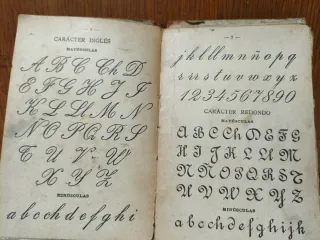 CARÁCTER INGLÉS
MAYÚSCULAS
A B C Ch D
E F G H I J
K L Ll M N
Ñ O P Q R S
T U V W
X Y Z
MINÚSCULAS
a b c ch d e f g h i
— 5 —
j k l ll m n ñ o p q
r s t u v w x y z
1 2 3 4 5 6 7 8 9 0
CARÁCTER REDONDO
MAYÚSCULAS
A B C Ch D E F G
H I J K L Ll M
N Ñ O P Q R S T
U V W X Y Z
MINÚSCULAS
a b c ch d e f g h i j k